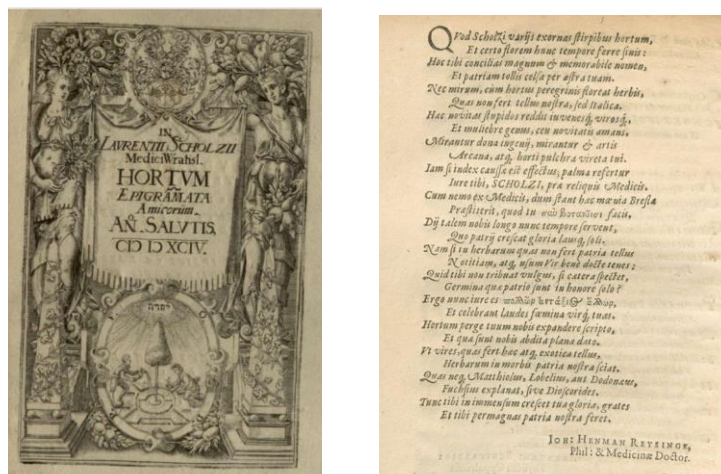 IN
LAVRENTII SCHOLZII
Medici Wratisl.
HORTVM
EPIGRAMATA
Amicorum.
AN. SALVTIS.
CIↃ IↃ XCIV.
יהוה
QVod Scholzi varijs exornas stirpibus hortum,
Et certo florem hunc tempore ferre sinis:
Hoc tibi concilias magnum & memorabile nomen,
Et patriam tollis celsa per astra tuam.
Nec mirum, cùm hortus peregrinis floreat herbis,
Quas non fert tellus nostra, sed Italica.
Hac novitas stupidos reddit iuvenesq́, virosq́,
Et muliebre genus, ceu novitatis amans.
Mirantur dona ingenij, mirantur & artis
Arcana, atq́, horti pulchra vireta tui.
Iam si index caussæ est effectus, palma refertur
Iure tibi, SCHOLZI, præ reliquis Medicis.
Cum nemo ex Medicis, dum stant hæc mœnia Breslæ
Præstiterit, quod tu facis,
Dij talem nobis longo nunc tempore servent,
Quo patrij crescat gloria lausq́, soli.
Nam si tu herbarum quas non fert patria tellus
Notitiam, atq́, usum Vir benè docte tenes:
Quid tibi non tribuat vulgus, si cætera spectet,
Germina quæ patrio sunt in honore solo?
Ergo nunc iure es
Et celebrant laudes fœmina virq́, tuas.
Hortum perge tuum nobis expandere scripto,
Et quæ sunt nobis abdita plana dato.
Vt vires, quas fert hæc atq́, exotica tellus,
Herbarum in morbis patria nostra sciat.
Quas neq́, Matthiolus, Lobelius, aut Dodonæus,
Fuchsius explanat, sive Dioscorides.
Tunc tibi in immensum crescet tua gloria, grates
Et tibi permagnas patria nostra feret.
IOH: HENMAN REYSINGK,
Phil: & Medicinæ Doctor.